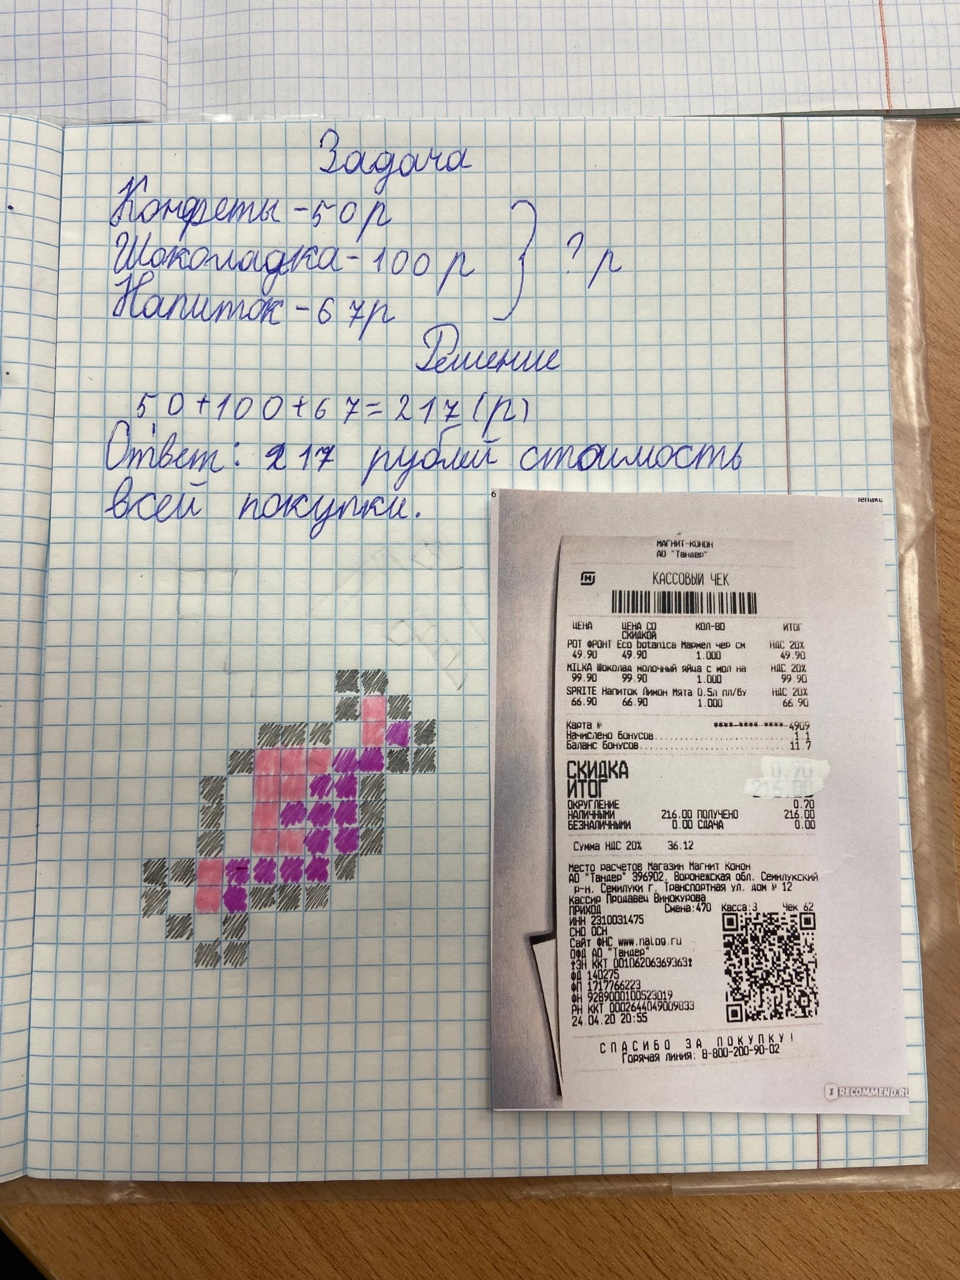 Задача
Конфеты - 50 р
Шоколадка - 100 р
Напиток - 67р
? р
Решение
50+100+67=217(р)
Ответ: 217 рублей стоимость
всей покупки.
6
МАГНИТ-КОНОН
АО "Тандер"
КАССОВЫЙ ЧЕК
ЦЕНА ЦЕНА СО СКИДКОЙ КОЛ-ВО ИТОГ
РОТ ФРОНТ Eco botanica Мармел чер см НДС 20%
49.90 49.90 1.000 49.90
MILKA Шоколад молочный яйца с мол на НДС 20%
99.90 99.90 1.000 99.90
SPRITE Напиток Лимон Мята 0.5л пл/бу НДС 20%
66.90 66.90 1.000 66.90
Карта № ****-****-****-4909
Начислено бонусов 1.1
Баланс бонусов 11.7
СКИДКА 0.70
ИТОГ 216.00
ОКРУГЛЕНИЕ 0.70
НАЛИЧНЫМИ 216.00 ПОЛУЧЕНО 216.00
БЕЗНАЛИЧНЫМИ 0.00 СДАЧА 0.00
Сумма НДС 20% 36.12
Место расчетов Магазин Магнит Конон
АО "Тандер" 396902, Воронежская обл. Семилукский
р-н. Семилуки г. Транспортная ул. дом № 12
Кассир Продавец Винокурова
ПРИХОД Смена:470 Касса:3 Чек 62
ИНН 2310031475
СНО ОСН
Сайт ФНС www.nalog.ru
ОФД АО "Тандер"
ЭН ККТ 001062063693631
ФД 140275
ФП 1717766223
ФН 9289000100523019
РН ККТ 0002644049009833
24.04.20 20:55
СПАСИБО ЗА ПОКУПКУ!
Горячая линия: 8-800-200-90-02
IRECOMMEND.RU